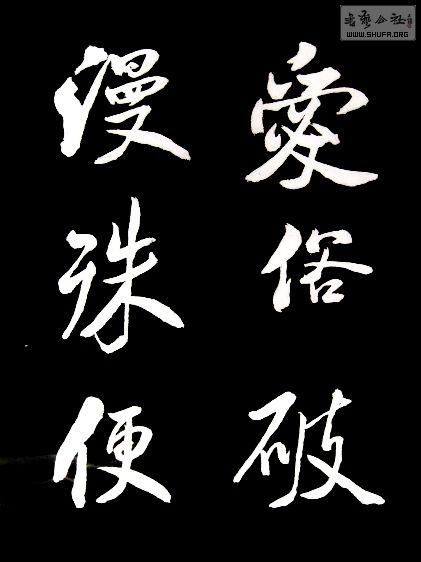 愛俗破
漫殊便
書藝公社
WWW.SHUFA.ORG